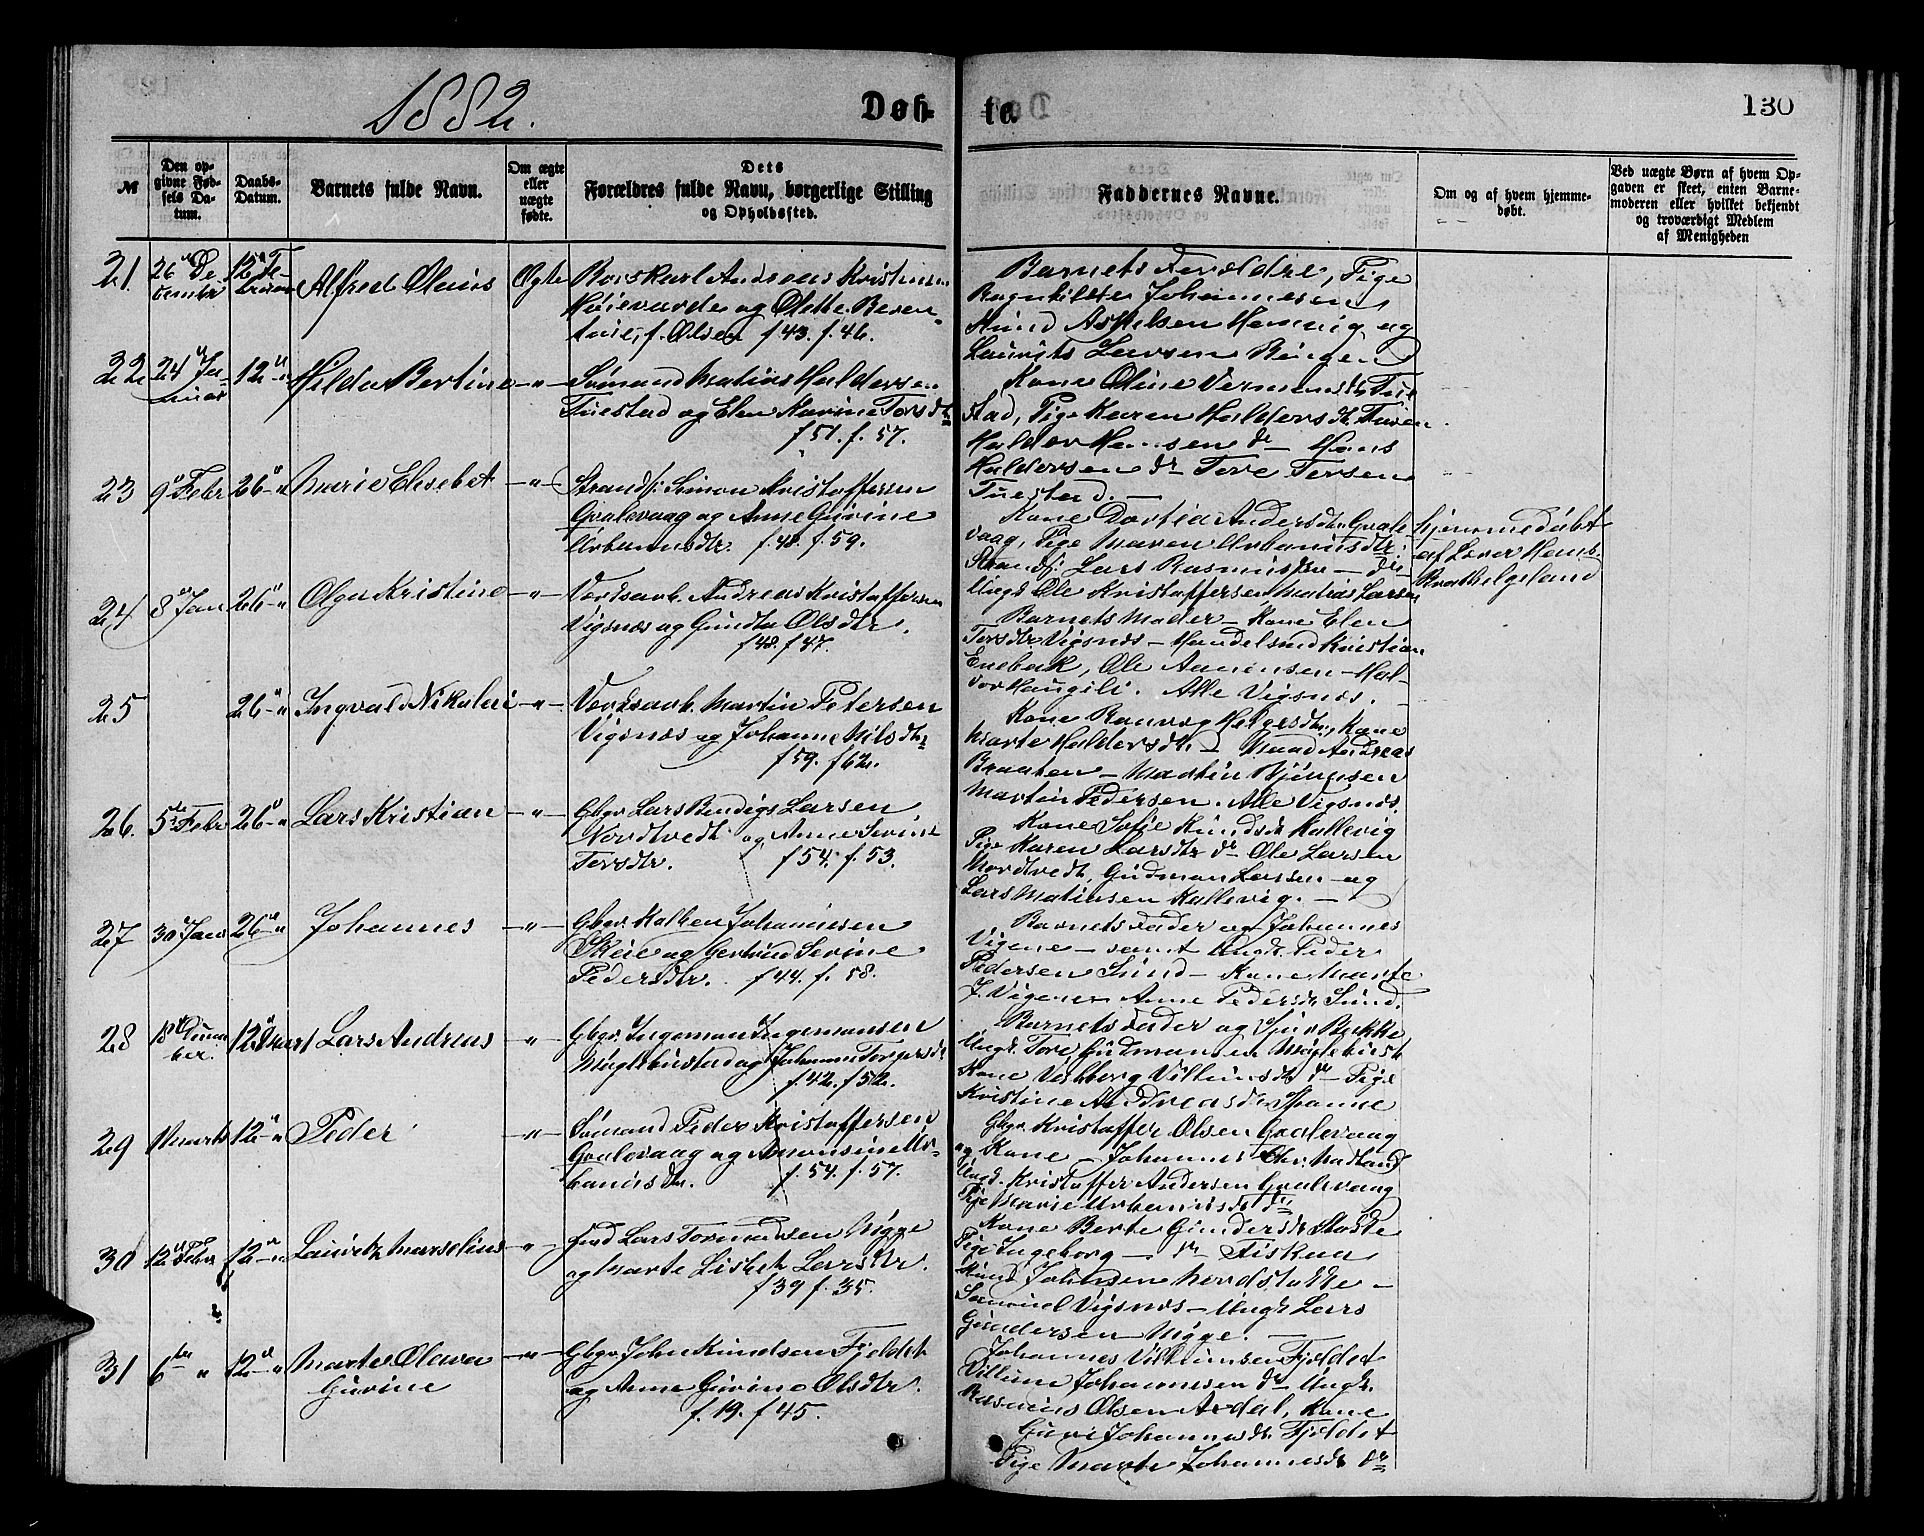 1882.
Døb-
te.
130
№
Den opgivne Fødsels Datum.
Daabs-Datum.
Barnets fulde Navn.
Om ægte eller uægte fødte.
Dets Forældres fulde Navn, borgerlige Stilling og Opholdssted.
Faddernes Navne.
Om og af hvem hjemmedøbt.
Ved uægte Børn af hvem Opgaven er skeet, enten Barnemoderen eller hvilket bekjendt og troværdigt Medlem af Menigheden
21
26 Decembr
12 Februar
Alfred Olaus
Ægte
Karl Andreas Kristensen
Høievarde og Olette Beren-
tine, f. Olsen f 43. f. 46.
Barnets Forældre, Pige
Ragnhilde Johannesen
Hemnig og
Laurits Larsen
22
24 Januar
12 "
Hilda Bertine
- " -
Sømand Matias Haldersen
Tuestad og Elen Karine Torsdtr
f 51. f. 57.
Kone Oline
stad, Pige Karen Haldersdtr.
Haldor Hansen do - Hans
Haldorsen do Tore Torsen
Tuestad. -
23
9 Febr
26 - "
Marie Elisebet
- " -
Strands. Simon Kristoffersen
Gvalevaag og Anne Gurine
Urbanusdtr. f. 48. f. 59.
Kone Dortia Andersdtr. Gvale
vaag, Pige Maren Urbanusdtr
Strands. Lars Rasmussen - do
Ungk Ole Kristoffersen Matias Larsen
Hjemmedøbt
af Lærer Hans
Helgeland
24
8 Jan
26 - "
Olga Kristine
- " -
Værdsarb. Andreas Kristoffersen
Vigsnæs og Gunda Olsdtr.
f 48. f 47.
Barnets Moder - Kone Elen
Torsdtr. Vigsnæs - Handelsmd Kristian
Enebak, Ole Amundsen - Hal-
vor Haugili. Alle Vigsnæs.
25
26 - "
Ingvald Nikolai
- " -
Værdsarb. Martin Petersen
Vigsnæs og Johanne Nilsdtr
f 59. f 62.
Kone Ranveg Helgesdtr, Kone
Marte Haldersdtr - Maad Andreas
Braaten - Martin
Martin Pedersen. Alle Vigsnæs.
26.
5te Febr
26 - "
Lars Kristian
- " -
Gbgr Lars Bendigs Larsen
Nordtvedt og Anne Serine
Torsdtr. f 54. f. 53.
Kone Sofie Knudsdtr Kallevig
Pige Karen Larsdtr do Ole Larsen
Nordtvedt, Gudman Larsen og
Lars Matiasen Kallevig. -
27
30 Jan
26 - "
Johannes
- " -
Gbgr. Johannesen
Skeie og Gertrud Serine
Pedersdtr. f 44. f. 58.
Barnets Fader og Johannes
Vigene - samt Ungk Peder
Pedersen Sund - Kone Marte
J. Vigene Anne Pedersdtr Sund.
28
18 December.
12 Mart
Lars Andreas
- " -
Gbgr. Ingeman Ingemansen
Møglebustad og Johanne Torgersdtr
f. 42. f 52.
Barnets Fader og Sjur Bakke
Ungk. Tore Gudmansen Møglebust
Kone Valborg Villumsdtr do - Pige
Kristine Andreasdtr Spanne
29
1 Marts
12 - "
Peder
- " -
Sømand Peder Kristoffersen
Gvalevaag og Amonsine Ur-
banusdtr. f. 54. f. 57.
Gbgr Kristoffer Olsen Gvalevaag
og Kone - Johannes Chr. Madland
Ungk. Kristoffer Andersen Gvalevaag
Pige Marie Urbanusdtr do
30
12 Febr
12 - "
Lauritz Marselius
- " -
Lars Tormodsen Nigge
og Marte Lisbet Larsdtr.
f 39 f. 35.
Kone Berte Gundersdtr
Pige Ingeborg - do Fiskaa
Knud Johnsen
Samuel Vigsnæs - Ungk Lars
Gundersen Nigge. -
31
6te "
12 - "
Marte Olava
Gurine
- " -
Gbgr John Knudsen Fjeldet
og Anne Gurine Olsdtr.
f. 19. f 45.
Johannes Villumsen Fjeldet
Villum Johannesen do - Ungk.
Rasmus Olsen Aadal, Kone
Guri Johannesdtr. Fjeldet
Pige Marte Johannesdtr do